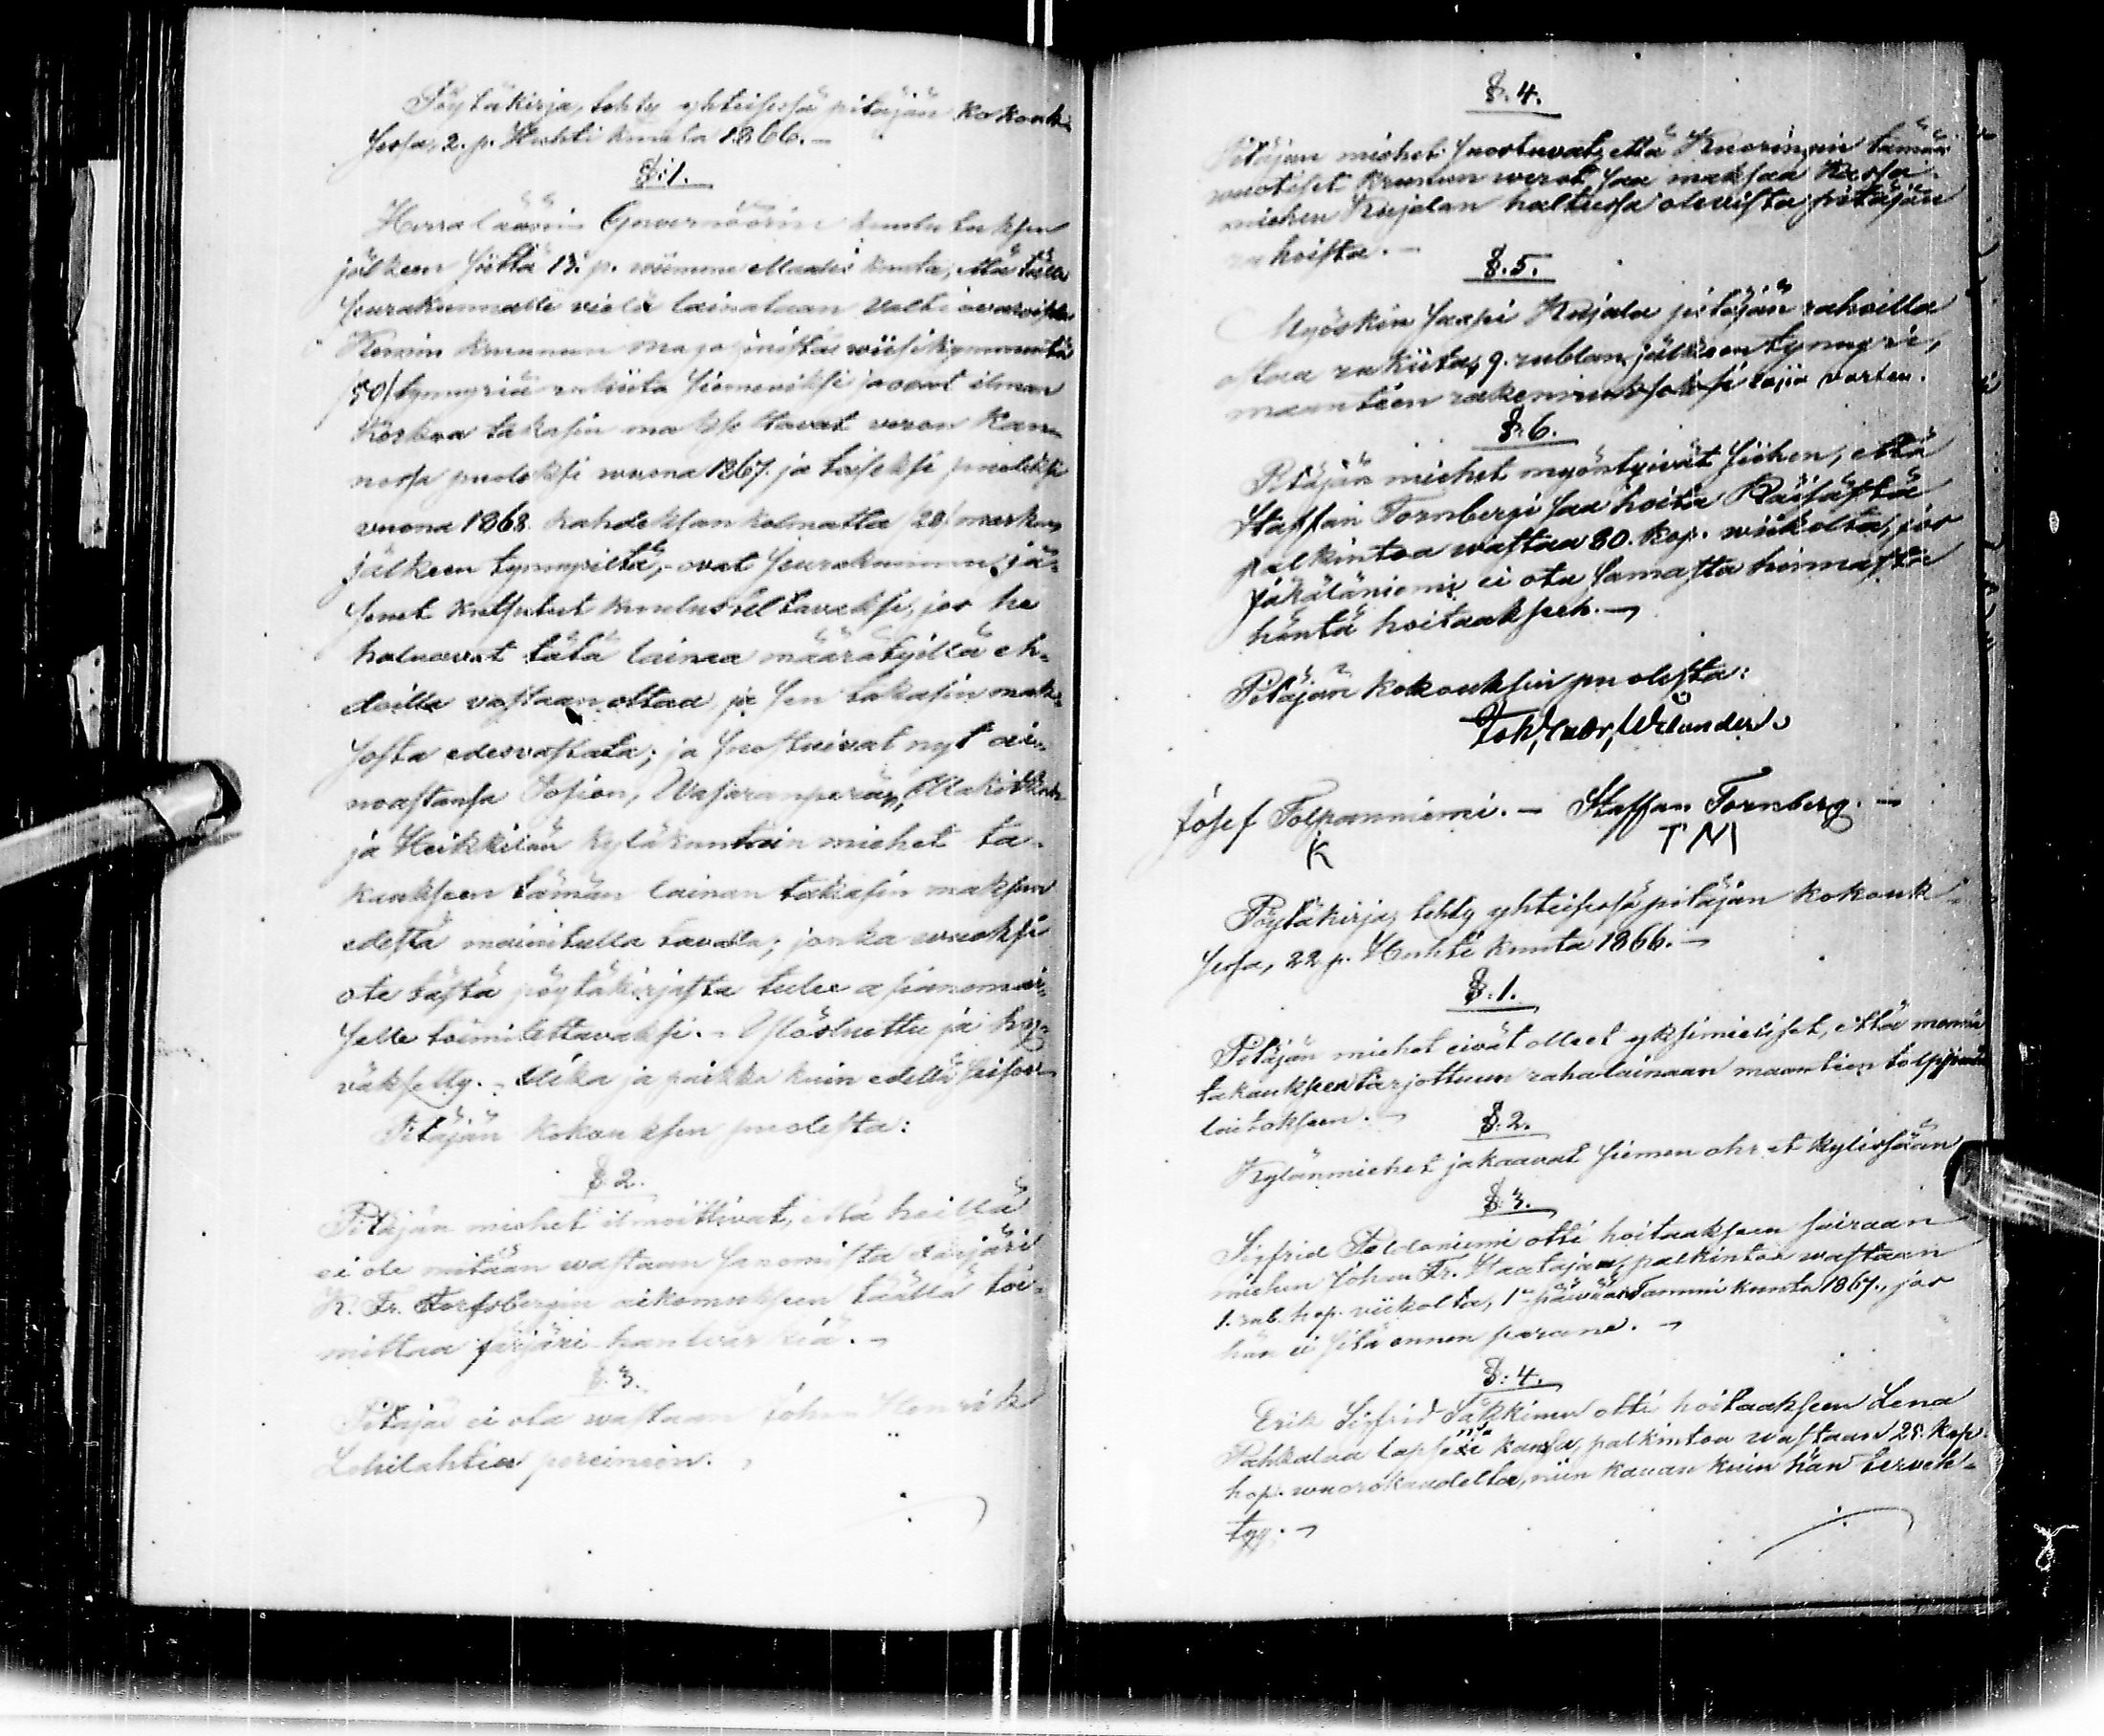 Pöytäkirja, tehty yhteisessä pitäjän kokouk-
sessa, 2. p. Huhti kuuta 1866. –
§. 1.
Herra läänin Gouvernöörin kuulutuksen
jälkeen siitä 13. p. viimme Maalis kuuta, että tälle
seurakunnalle vielä lainataan valtiovaroista
Kemin kruunun magasinista viisikymmentä
/50/ tynnyriä rukiita siemeniksi ja ovat ilman
korkoa takasin maksettavat veron kan-
nossa puoleksi vuona 1867. ja toiseksi puoleksi
vuona 1868. kahdeksan kolmatta /28/ markan
jälkeen tynnyriltä, – ovat seurakunnan jä-
senet kutsutut kuulusteltavaksi, jos he
haluavat tätä lainaa määrätyillä eh-
doilla vastaanottaa ja sen takasin mak-
sosta edesvastata; ja suostuivat nyt ai-
noastansa Posion, Wasaranperän,
ja Heikkilän kyläkuntain miehet ta-
kaakseen tämän lainan takasin maksun
edestä mainitulla tavalla; jonka vuoksi
ote tästä pöytäkirjasta tulee asianomai-
selle toimitettavaksi. – Ylösluettu ja hy-
väksytty. – Aika ja paikka kuin edellä seisoo.
Pitäjän kokouksen puolesta:
§ 2.
Pitäjän miehet ilmoittivat, että heillä
ei ole mitään vastaan sanomista färjäri
K. Fr. Forssbergin aikomukseen täällä toi-
mittaa färjäri-hantvärkiä. –
§. 3.
Pitäjäs ei ota vastaan Johan Henrik
Lohilahtia pereineen.
§. 4.
Pitäjän miehet suostuvat, että Knorinpin tämän
vuotiset kruunun verot saa maksaa Kassa-
miehen Karjalan haltussa olevista pitäjän
rahoista. –
§. 5.
Myöskin saapi Karjala pitäjän rahoilla
ostaa rukiita, 9. rublan jälkeen tynnyri,
maantien rakennus varten.
§. 6.
Pitäjän miehet myöntyivät siihen, että
Staffan Tornbergi saa hoita Räisästä
palkintoa vastaa 80. kop. viikolta, jos
Jäkäläniemi ei ota samasta hinnasta
häntä hoitaakseen. –
Pitäjän kokouksen puolesta:
Joh, Gabr, Welander.
Josef Tolpanniemi. – Staffan Tornberg. –
K TM
Pöytäkirja, tehty yhteisessä pitäjän kokouk-
sessa, 22 p. Huhti kuuta 1866. –
§. 1.
Pitäjän miehet eivät olleet yksimieliset, että mennä
takaukseen tarjottuun rahalainaan maantien
laitokseen. –
§. 2.
Kylänmiehet jakaavat siemen ohrat kylissään
§. 3.
Sigfrid Peldoniemi otti hoitaakseen sairaan
miehen Johan Fr. Haatajan, palkintoa vastaan
1. rub. hop. viikolta, 1:een päivään Tammi kuuta 1867., jos
hän ei sitä ennen parane. –
§. 4.
Erik Sigfrid Säkkinen otti hoitaakseen Lena
Pahkalaa lapsensa kanssa, palkintoa vastaan 25. kop.
hop. vuorokaudelta, niin kauan kuin hän terveh-
tyy. –